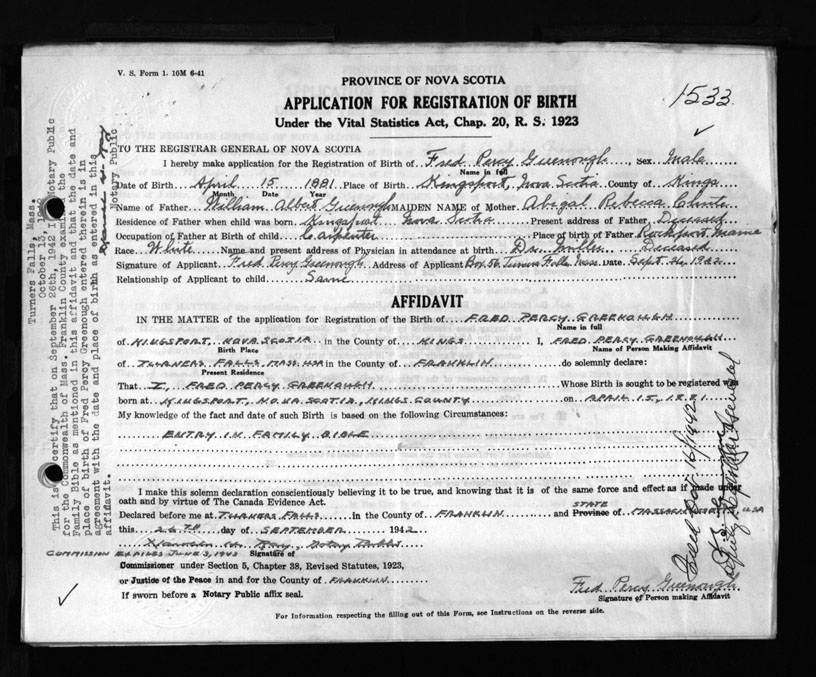 V. S. Form 1. 10M 6-41
PROVINCE OF NOVA SCOTIA
1533
APPLICATION FOR REGISTRATION OF BIRTH
Under the Vital Statistics Act, Chap. 20, R. S. 1923
TO THE REGISTRAR GENERAL OF NOVA SCOTIA
I hereby make application for the Registration of Birth of Fred Percy Greenough, Sex Male
Name in full
Date of Birth April 15 1881 Place of Birth Kingsport, Nova Scotia County of Kings
Month Date Year
Name of Father William Albert Greenough MAIDEN NAME of Mother Abigal Rebecca
Residence of Father when child was born Kingsport Nova Scotia Present address of Father Deceased
Occupation of Father at Birth of child Carpenter Place of Birth of Father Rockport, Maine
Race White Name and present address of Physician in attendance at birth Dr. Deceased
Signature of Applicant Fred Percy Greenough Address of Applicant Box 56 Turners Falls Mass. Date Sept. 26, 1942
Relationship of Applicant to child Same
AFFIDAVIT
IN THE MATTER of the application for Registration of the Birth of FRED PERCY GREENOUGH
Name in full
of KINGSPORT, NOVA SCOTIA in the County of KINGS I, FRED PERCY GREENOUGH
Birth Place Name of Person Making Affidavit
of TURNERS FALLS, MASS. USA in the County of FRANKLIN do solemnly declare:
Present Residence
That I, FRED PERCY GREENOUGH Whose Birth is sought to be registered was
born at KINGSPORT, NOVA SCOTIA, KINGS COUNTY on APRIL 15, 1881
My knowledge of the fact and date of such Birth is based on the following Circumstances:
ENTRY IN FAMILY BIBLE
I make this solemn declaration conscientiously believing it to be true, and knowing that it is of the same force and effect as if made under
oath and by virtue of The Canada Evidence Act.
STATE
Declared before me at TURNERS FALLS in the County of FRANKLIN and Province of MASSACHUSETTS USA
this 26TH day of SEPTEMBER 1942
Notary Public
COMMISSION EXPIRES JUNE 3, 1943 Signature of
Commissioner under Section 5, Chapter 38, Revised Statutes, 1923,
or Justice of the Peace in and for the County of FRANKLIN
Fred Percy Greenough
If sworn before a Notary Public affix seal.
Signature of Person making Affidavit
For Information respecting the filling out of this Form, see Instructions on the reverse side.
Turners Falls, Mass.
October 13, 1942
This is to certify that on September 26th, 1942, I Notary Public
for the Commonwealth of Mass. Franklin County examined the
Family Bible as mentioned in this affidavit and that the date and
place of birth of Fred Percy Greenough entered therein is in
agreement with the date and place of birth as entered in this
affidavit.
Notary Public